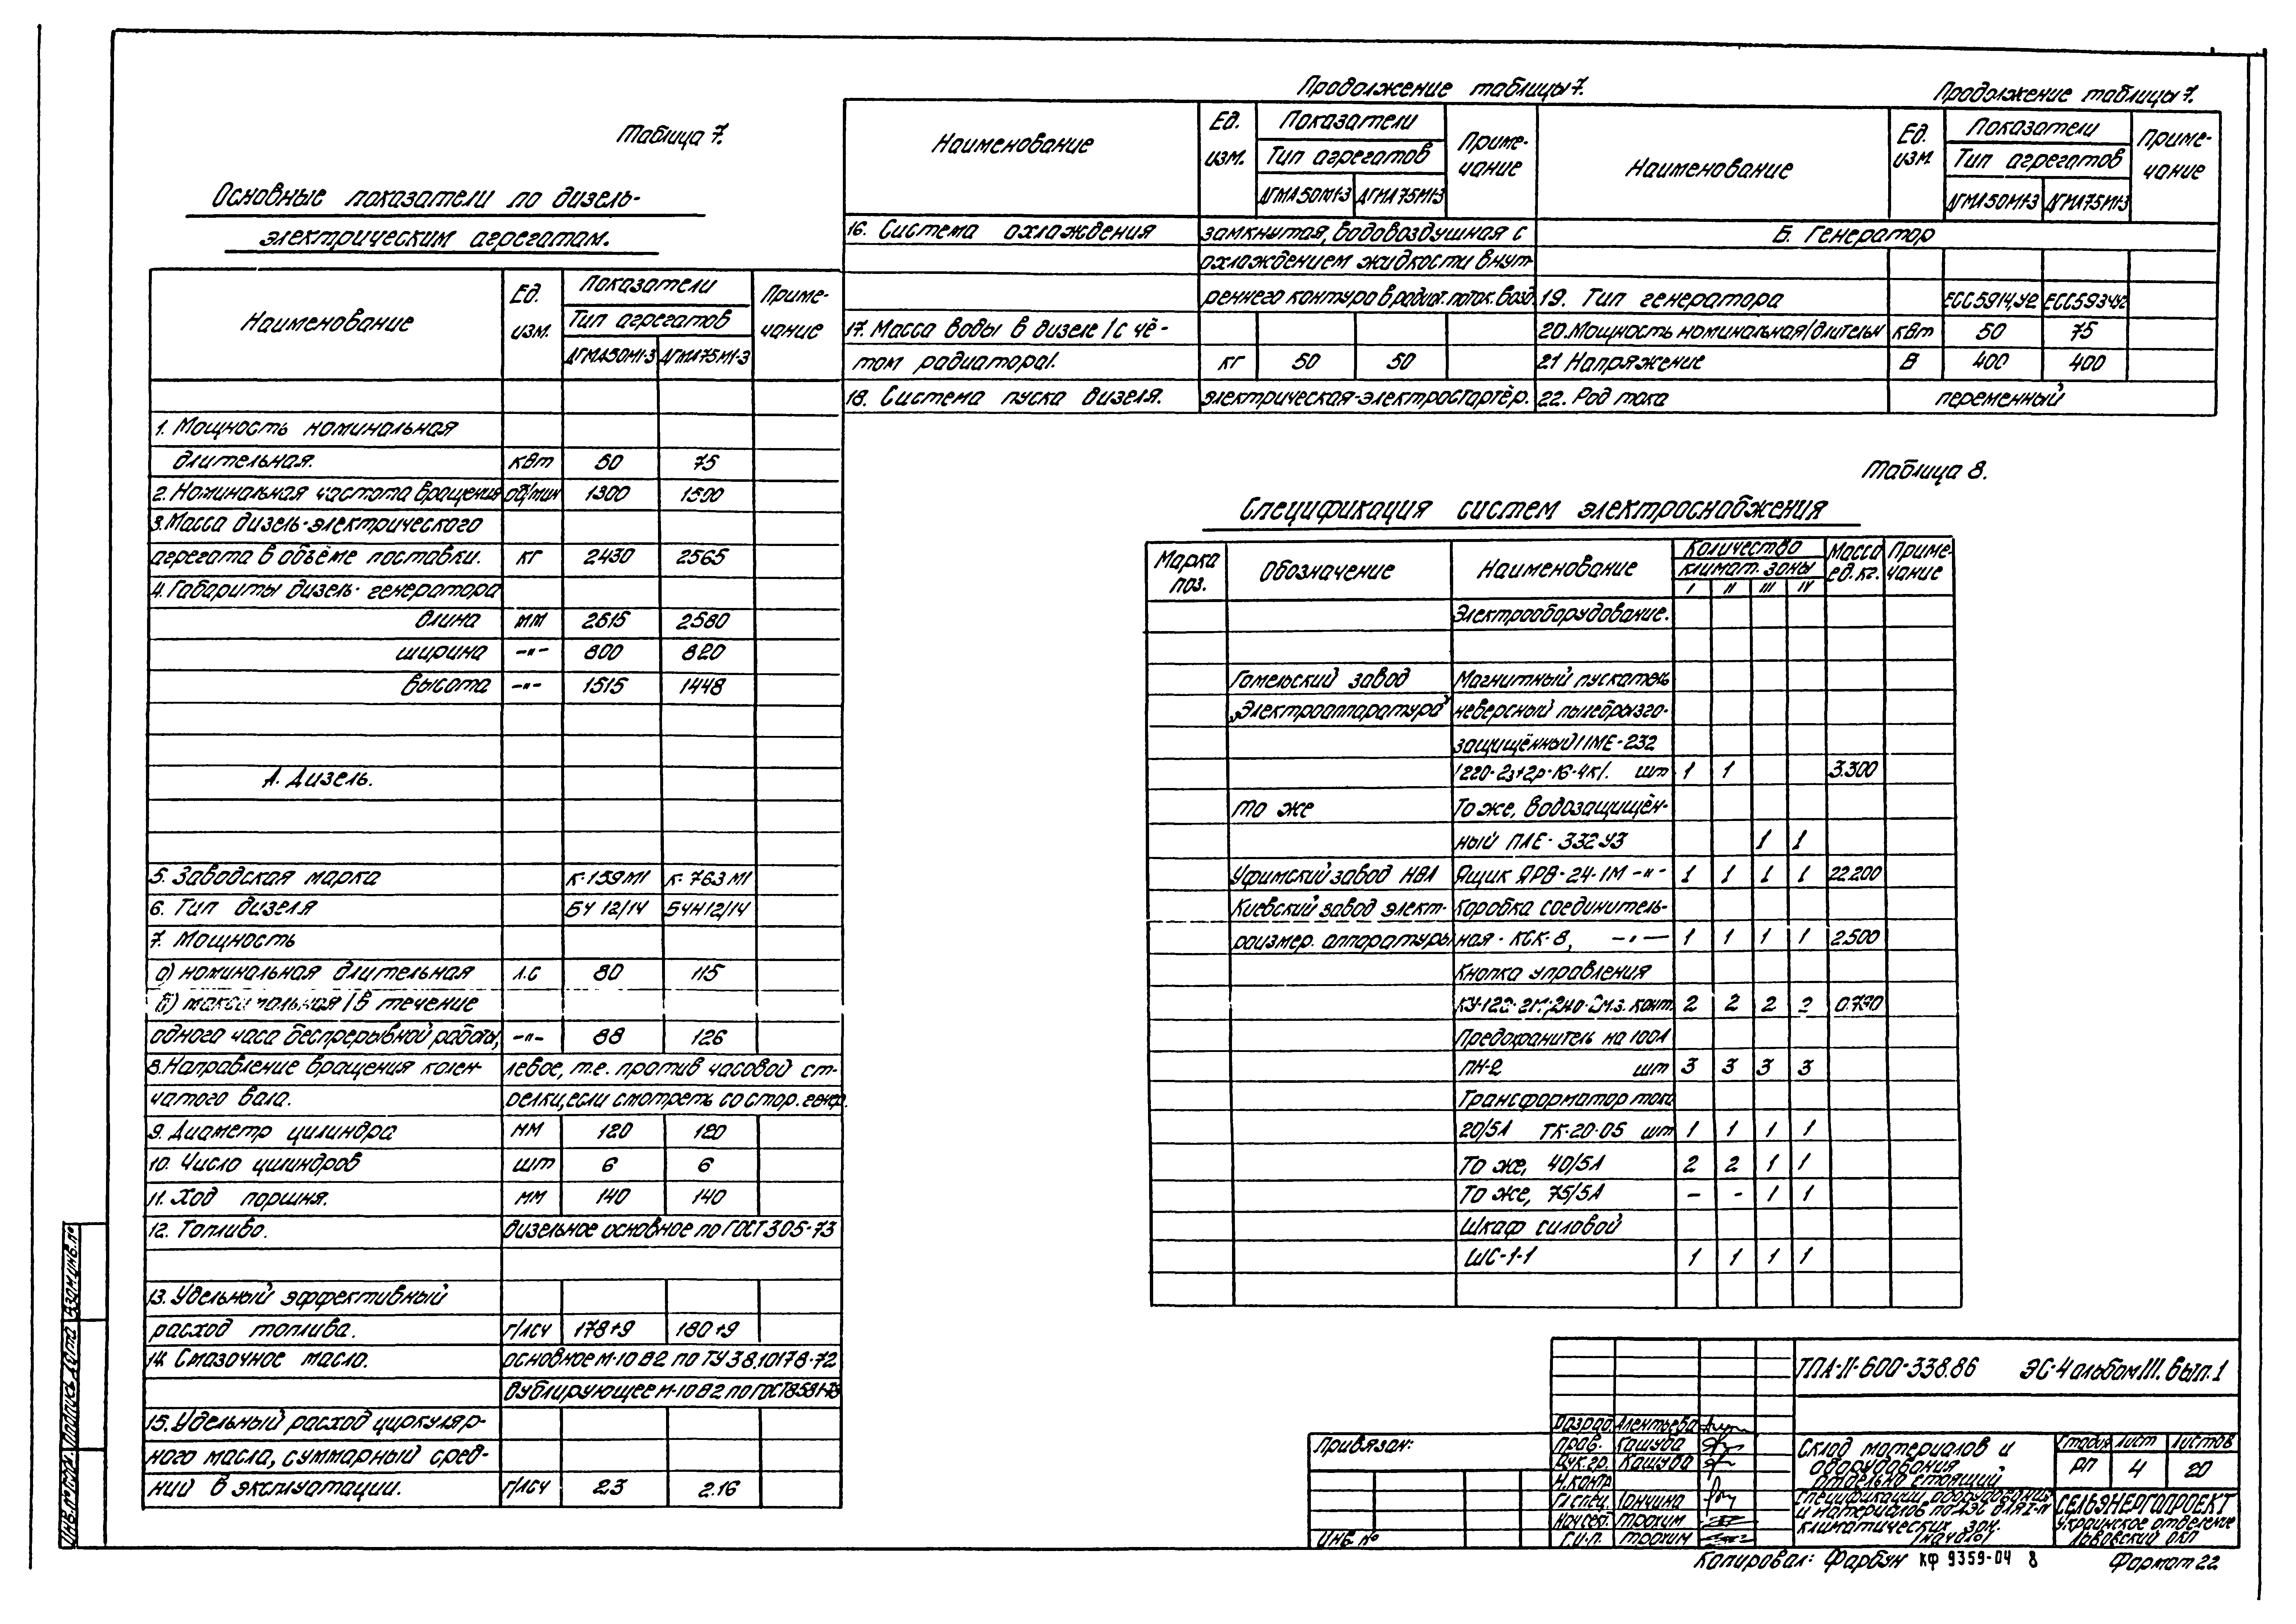 Таблица 7.
Основные показатели по дизель-
электрическим агрегатам.
Наименование | Ед. изм. | Показатели | Примечание
Тип агрегатов
ДГМА50М1-3 | ДГМА75М1-3
1. Мощность номинальная
длительная. | кВт | 50 | 75
2. Номинальная частота вращения | об/мин | 1500 | 1500
3. Масса дизель-электрического
агрегата в объёме поставки. | кг | 2430 | 2565
4. Габариты дизель-генератора
длина | мм | 2615 | 2580
ширина | -"- | 800 | 820
высота | -"- | 1515 | 1448
А. Дизель.
5. Заводская марка | К-159М1 | К-763М1
6. Тип дизеля | 6Ч 12/14 | 6ЧН12/14
7. Мощность
а) номинальная длительная | л.с | 80 | 115
б) максимальная /в течение
одного часа беспрерывной работы, | -"- | 88 | 126
8. Направление вращения колен- | левое, т.е. против часовой ст-
чатого вала. | релки, если смотреть со стор. генер.
9. Диаметр цилиндра | мм | 120 | 120
10. Число цилиндров | шт | 6 | 6
11. Ход поршня. | мм | 140 | 140
12. Топливо. | дизельное основное по ГОСТ 305-73
13. Удельный эффективный
расход топлива. | г/лсч | 178+9 | 180+9
14. Смазочное масло. | основное М-10В2 по ТУ38.10178-72
дублирующее М-10В2 по ГОСТ8581-78
15. Удельный расход циркуляр-
ного масла, суммарный сред-
ний в эксплуатации. | г/лсч | 2.3 | 2.16
Продолжение таблицы 7.
Наименование | Ед. изм. | Показатели | Примечание
Тип агрегатов
ДГМА50М1-3 | ДГМА75М1-3
16. Система охлаждения | замкнутая, водовоздушная с
охлаждением жидкости внут-
реннего контура в радиат. поток. возд.
17. Масса воды в дизеле /с чё-
том радиатора/. | кг | 50 | 50
18. Система пуска дизеля. | электрическая-электростартёр.
Продолжение таблицы 7.
Наименование | Ед. изм. | Показатели | Примечание
Тип агрегатов
ДГМА50М1-3 | ДГМА75М1-3
Б. Генератор
19. Тип генератора | ЕСС5914У2 | ЕСС5934У2
20. Мощность номинальная/длительн | кВт | 50 | 75
21 Напряжение | В | 400 | 400
22. Род тока | переменный
Таблица 8.
Спецификация систем электроснабжения
Марка поз. | Обозначение | Наименование | Количество климат. зоны | Масса ед. кг. | Примечание
I | II | III | IV
Электрооборудование.
Гомельский завод | Магнитный пускатель
„Электроаппаратура" | неверсный пылебрызго-
защищённый ПМЕ-232
/220-2з+2р-16-4к/. шт | 1 | 1 | 3.300
то же | То же, водозащищён-
ный ПАЕ-332У3 | 1 | 1
Уфимский завод НВА | Ящик ЯРВ-24-1М -"- | 1 | 1 | 1 | 1 | 22.200
Киевский завод элект- | Коробка соединитель-
роизмер. аппаратуры | ная - КСК-8, -"- | 1 | 1 | 1 | 1 | 2.500
Кнопка управления
КУ-122-2М; 2но-2н.з. конт. | 2 | 2 | 2 | 2
Предохранитель на 100А
ПН-2 шт | 3 | 3 | 3 | 3
Трансформатор тока
20/5А ТК-20-05 шт | 1 | 1 | 1 | 1
То же, 40/5А | 2 | 2 | 1 | 1
То же, 75/5А | - | - | 1 | 1
Шкаф силовой
ШС-1-1 | 1 | 1 | 1 | 1
ТПА-II-600-338.86 ЭС-4 альбом III. вып. 1
Разраб. Алентьева
Пров. Кашуба
Рук.гр. Кашуба
Н.контр
Гл.спец. Гончина
Нач.сек. Трохим
Г.и.п. Трохим
Привязан:
Инв №
Склад материалов и
оборудования
отдельно стоящий
Спецификации оборудования
и материалов по ДЭС для I-IV
климатических зон.
/начало/
Стадия | Лист | Листов
РП | 4 | 20
СЕЛЬЭНЕРГОПРОЕКТ
Украинское отделение
Львовский ОКП
Копировал: Фарбун КФ 9359-04 8 Формат 22
Инв.№ подл. | Подпись и дата | Взам.инв.№